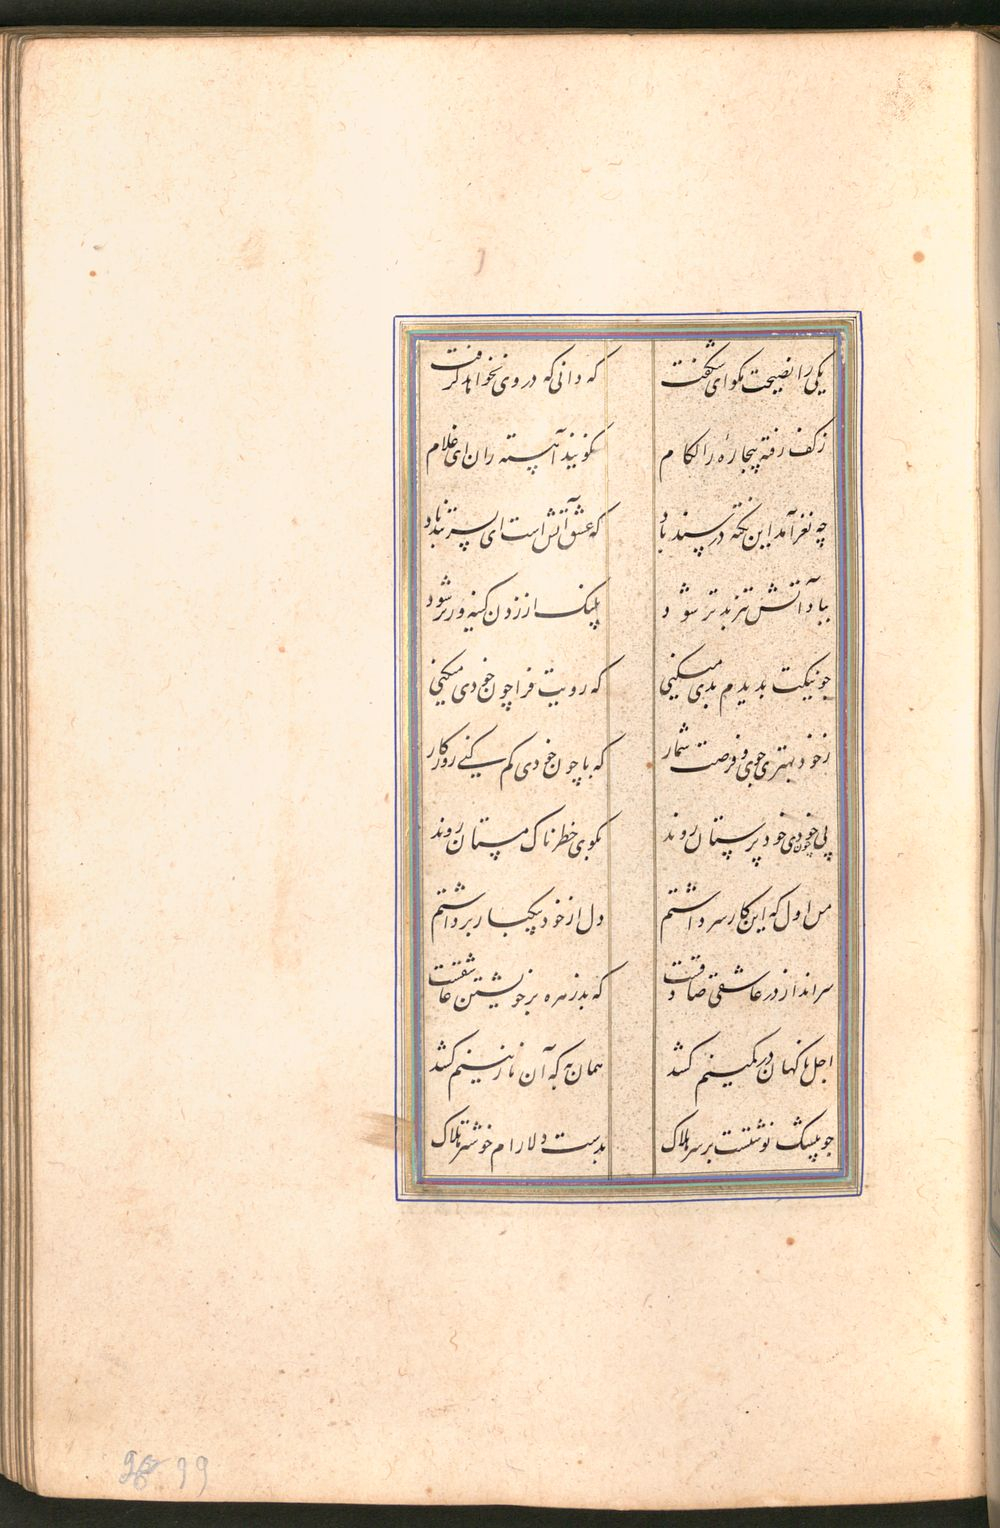 یکی را نصیحت مکو ای شکفت
که دانی که در وی نخواهد گرفت
ز کف رفته بیچاره را لکام
نکویند آهسته ران ای غلام
چه نغز آمد این نکته در سندباد
که عشق آتش است ای پسر پند باد
بباد آتش تیز بدتر شود
پلنک از زدن کینه ور تر شود
چو نیکت بدیدم بدی میکنی
که رویت فرا چون خودی میکنی
ز خود بهتری جوی و فرصت شمار
که با چون خودی کم کنی روزکار
پی چون خودی خود پرستان روند
بکوی خطرناک مستان روند
من اول که این کار سر داشتم
دل از خود بیکبار برداشتم
سرانداز در عاشقی صادقست
که بد زهره بر خویشتن عاشقست
اجل ناکهان در کمینم کشد
همان به که آن نازنینم کشد
چو بیشک نوشتست بر سر هلاک
بدست دلارام خوشتر هلاک
99